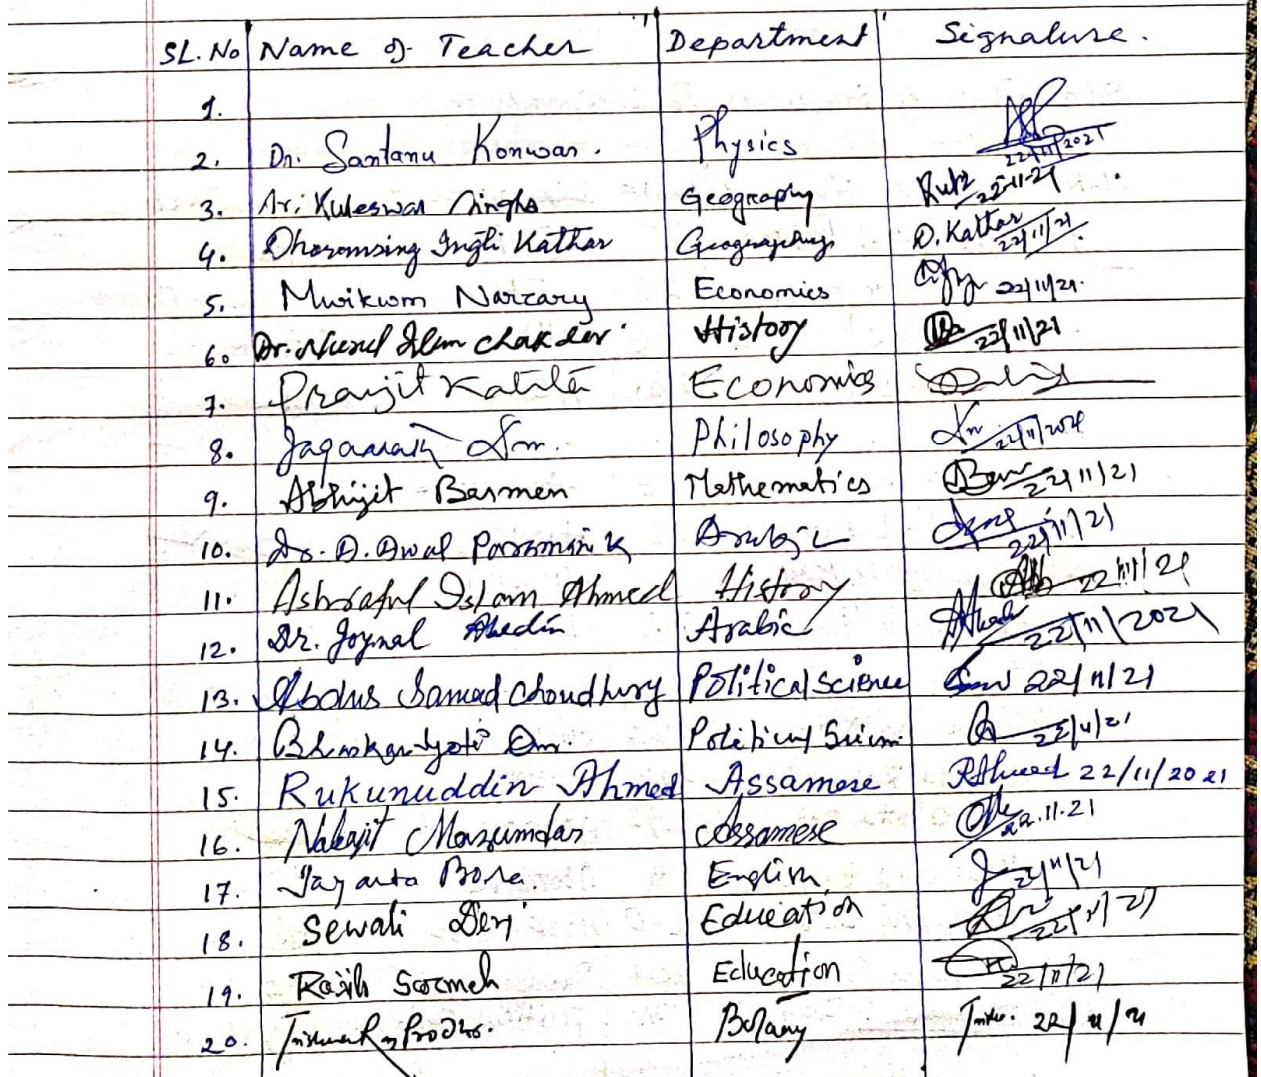 SL. No Name of Teacher Department Signature.
1.
2. Dr. Santanu Konwar. Physics 22/11/2021
3. Sri Kuleswar Singha Geography 22-11-21
4. Dharamsing Ingti Kathar Geography D. Kathar 22/11/21
5. Mwikwm Narzary Economics 22/11/21.
6. Dr. Nurul Islam Chakdar History 22/11/21
7. Pranjit Kalita Economics
8. Jagannath Philosophy 22/11/2021
9. Abhijit Barman Mathematics 22/11/21
10. Dr. A. Awal Paramanik Arabic 22/11/21
11. Ashraful Islam Ahmed History 22/11/21
12. Dr. Joynal Abedin Arabic 22/11/2021
13. Abdus Samad Choudhury Political Science 22/11/21
14. Bhaskar Jyoti Political Scien. 22/11/21
15. Rukunuddin Ahmed Assamese RAhmed 22/11/2021
16. Nabajit Mazumdar Assamese 22.11.21
17. Jayanta Bora. English 22/11/21
18. Sewali Devi Education 22/11/21
19. Rajib Sarmah Education 22/11/21
20. Botany 22/11/21